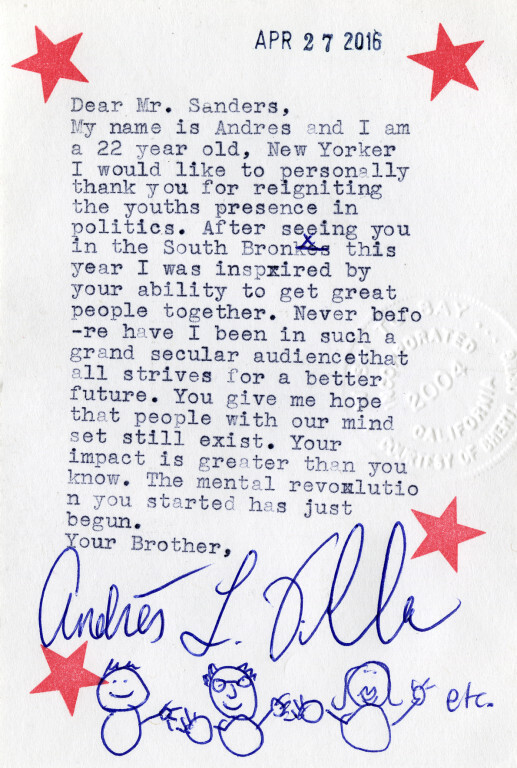 APR 27 2016
Dear Mr. Sanders,
My name is Andres and I am
a 22 year old, New Yorker
I would like to personally
thank you for reigniting
the youths presence in
politics. After seeing you
in the South Bronx this
year I was inspxired by
your ability to get great
people together. Never befo
-re have I been in such a
grand secular audiencethat
all strives for a better
future. You give me hope
that people with our mind
set still exist. Your
impact is greater than you
know. The mental revoxlutio
n you started has just
begun.
Your Brother,
Andrés L. Villa
etc.
SAY
INCORPORATED
2004
CALIFORNIA
COURTESY OF